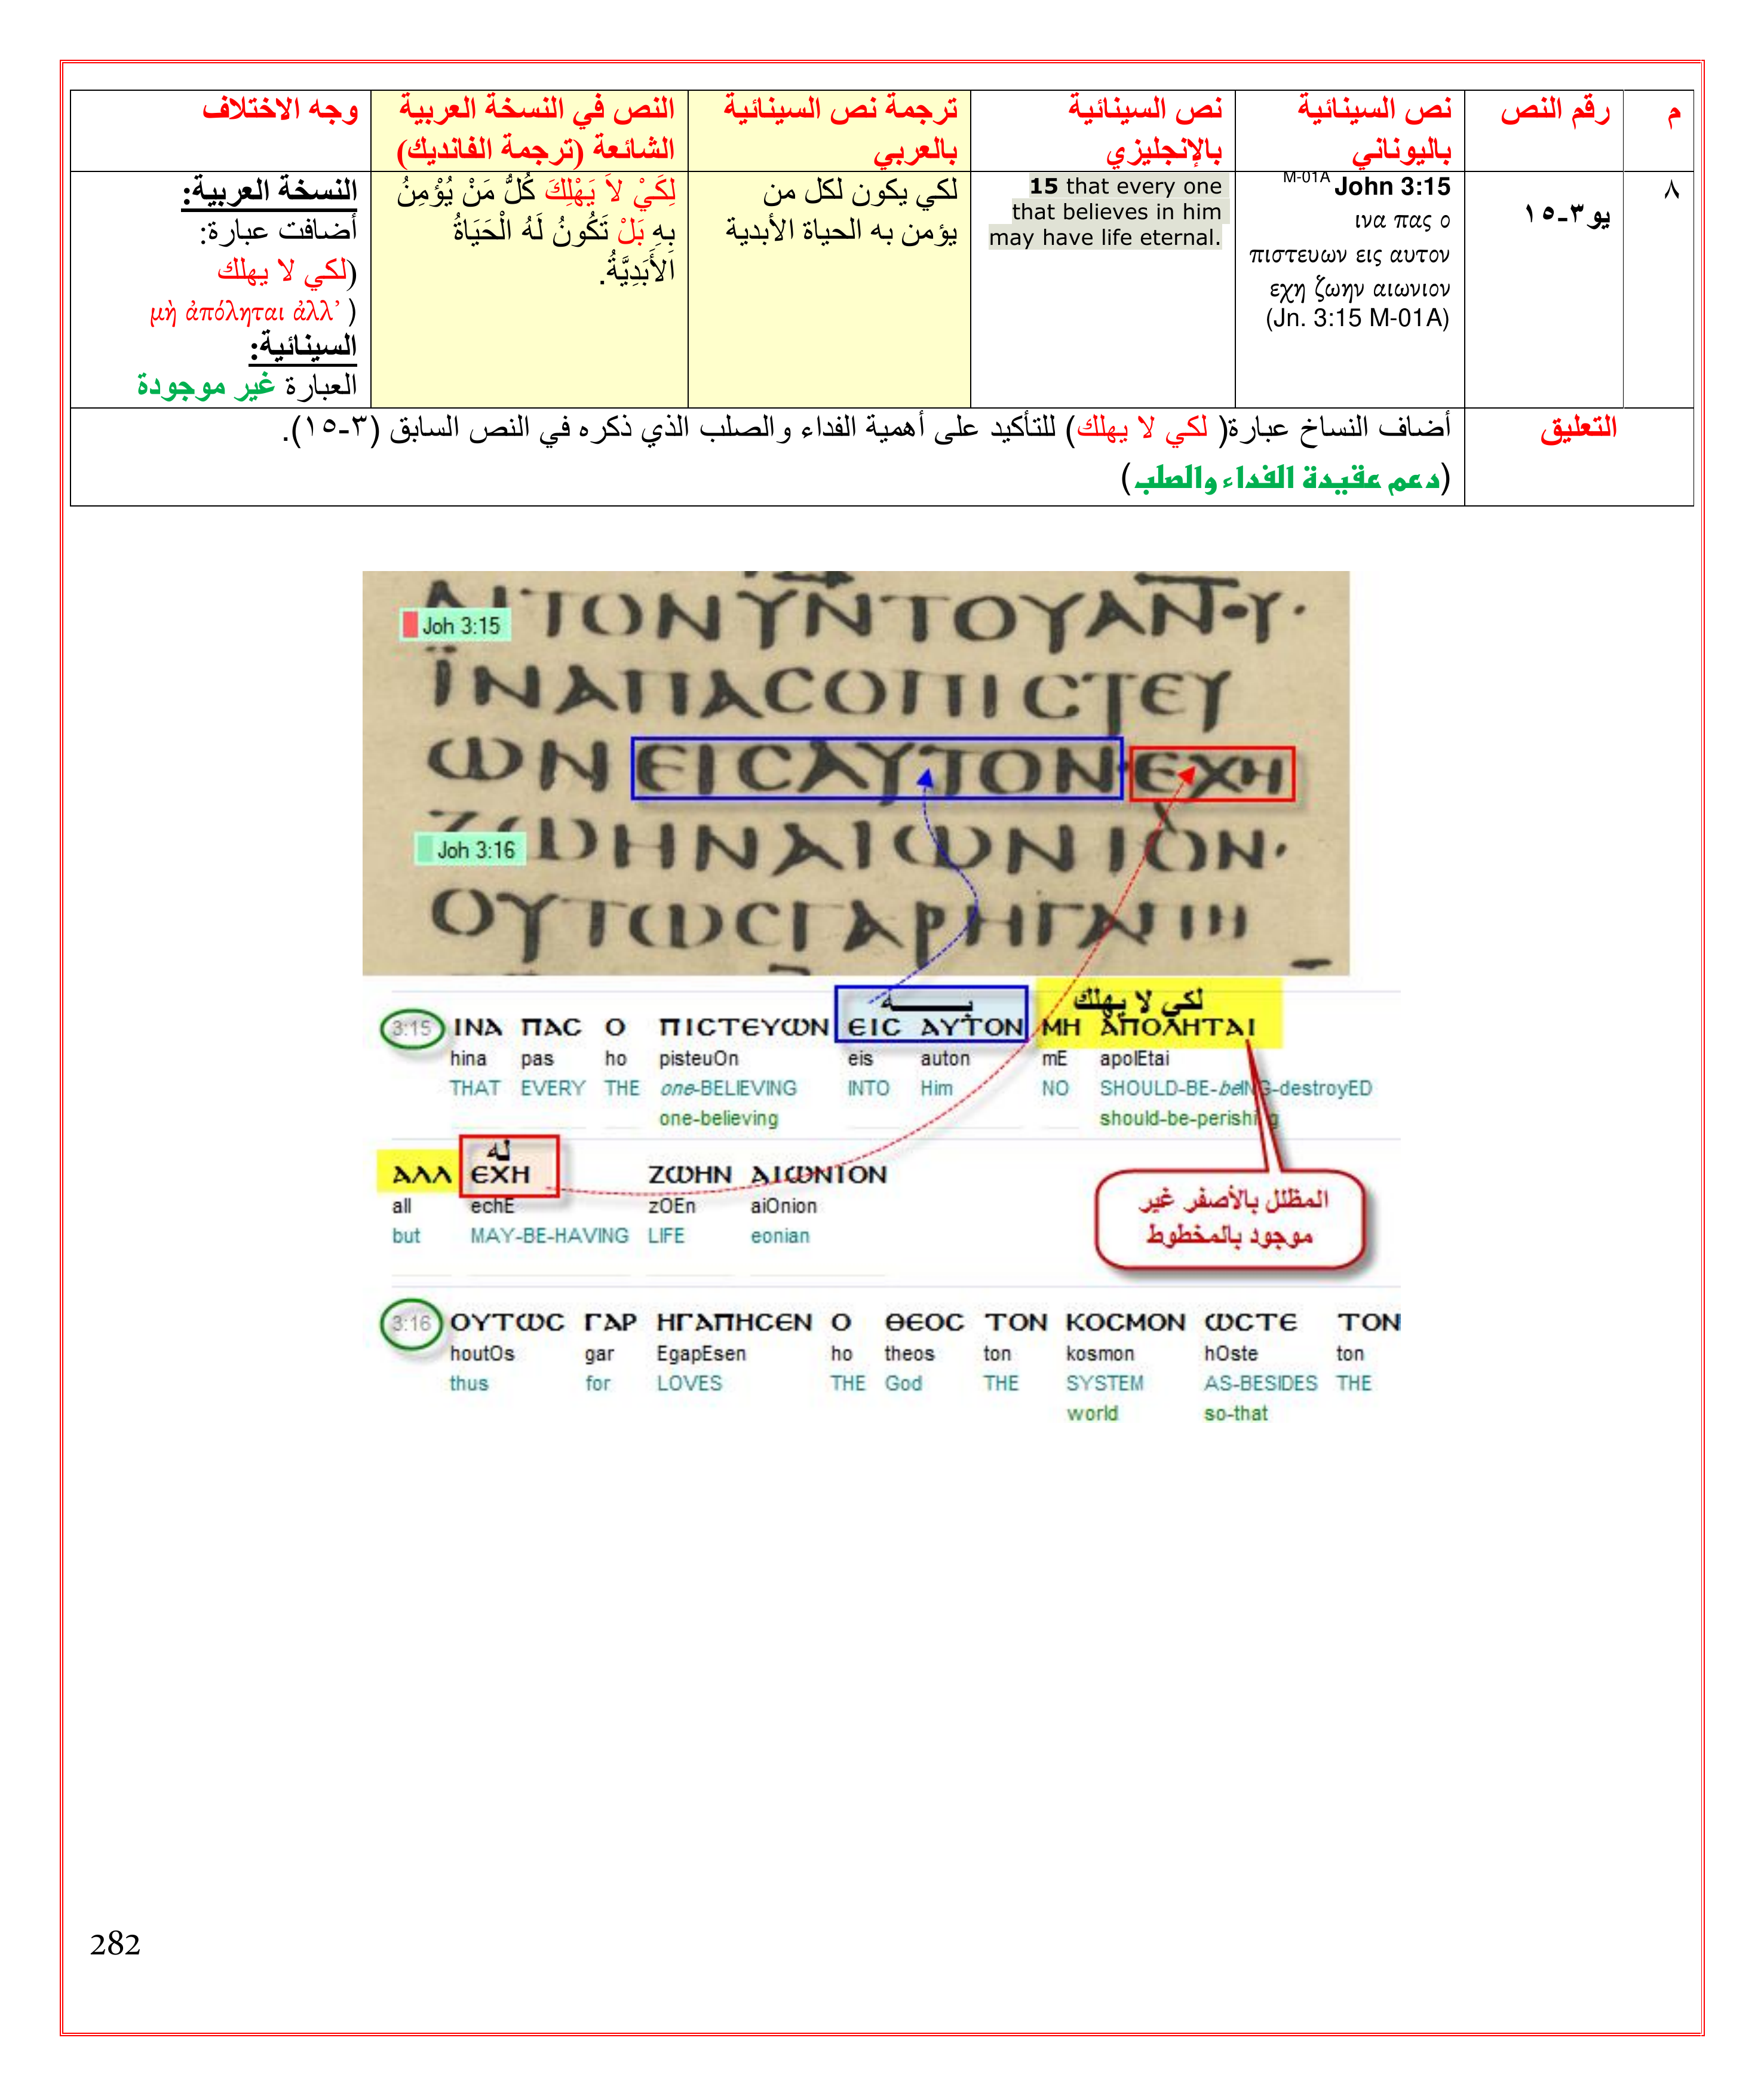 م
رقم النص
نص السينائية
باليوناني
نص السينائية
بالإنجليزي
ترجمة نص السينائية
بالعربي
النص في النسخة العربية
الشائعة (ترجمة الفانديك)
وجه الاختلاف
٨
يو ٣-١٥
M-01A John 3:15
ινα πας ο
πιστευων εις αυτον
εχη ζωην αιωνιον
(Jn. 3:15 M-01A)
15 that every one
that believes in him
may have life eternal.
لكي يكون لكل من
يؤمن به الحياة الأبدية
لِكَيْ لاَ يَهْلِكَ كُلُّ مَنْ يُؤْمِنُ
بِهِ بَلْ تَكُونُ لَهُ الْحَيَاةُ
الأَبَدِيَّةُ.
النسخة العربية:
أضافت عبارة:
(لكي لا يهلك
μὴ ἀπόληται ἀλλ’ )
السينائية:
العبارة غير موجودة
التعليق
أضاف النساخ عبارة( لكي لا يهلك) للتأكيد على أهمية الفداء والصلب الذي ذكره في النص السابق (٣-١٥).
(دعم عقيدة الفداء والصلب)
Joh 3:15
ΙΝΑΠΑСΟΠΙСΤΕΥ
ωΝΕΙСΑΥΤΟΝ·ΕΧΗ
Joh 3:16
ΖωΗΝΑΙωΝΙΟΝ·
ΟΥΤωСΓΑΡΗΓΑΠΗ
بـــــه
لكي لا يهلك
3:15 ΙΝΑ ΠΑС Ο ΠΙСΤΕΥωΝ ΕΙС ΑΥΤΟΝ ΜΗ ΑΠΟΛΗΤΑΙ
hina pas ho pisteuOn eis auton mE apolEtai
THAT EVERY THE one-BELIEVING INTO Him NO SHOULD-BE-beING-destroyED
one-believing should-be-perishing
له
ΑΛΛ ΕΧΗ ΖωΗΝ ΑΙωΝΙΟΝ
all echE zOEn aiOnion
but MAY-BE-HAVING LIFE eonian
المظلل بالأصفر غير
موجود بالمخطوط
3:16 ΟΥΤωС ΓΑΡ ΗΓΑΠΗСΕΝ Ο ΘΕΟС ΤΟΝ ΚΟСΜΟΝ ωСΤΕ ΤΟΝ
houtOs gar EgapEsen ho theos ton kosmon hOste ton
thus for LOVES THE God THE SYSTEM AS-BESIDES THE
world so-that
282